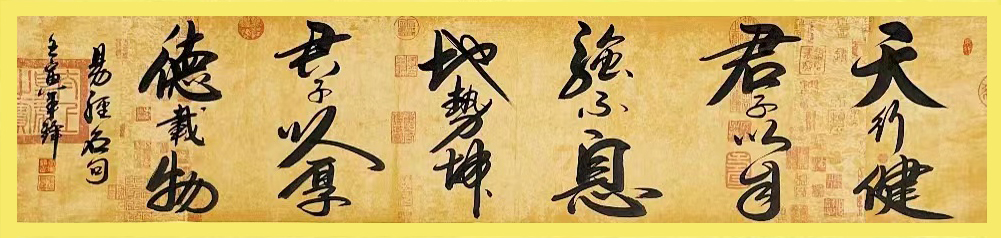 天行健
君子以自
強不息
地勢坤
君子以厚
德載物
易經名句
壬寅